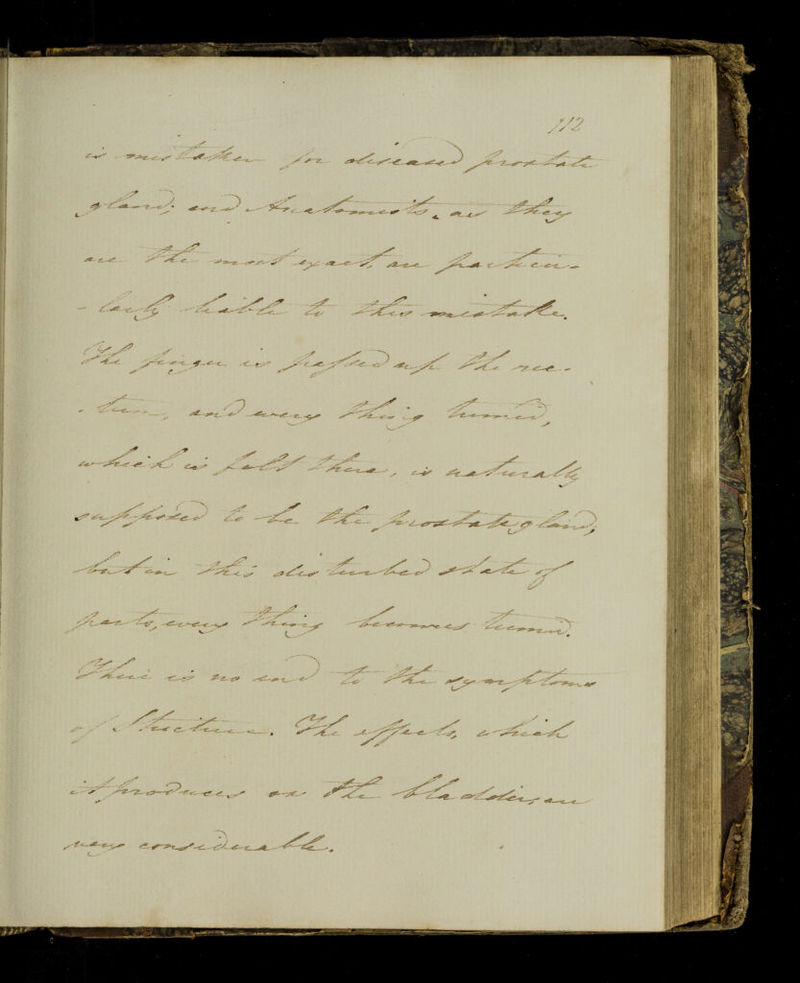 112
is mistaken for diseased prostate
gland; and Anatomists, as they
are the most exact, are particu-
-larly liable to this mistake.
The finger is passed up the rec-
-tum, and every thing tumid,
which is felt there, is naturally
supposed to be the prostate gland;
but in this disturbed state of
parts, every thing becomes tumid.
There is no end to the symptoms
of Stricture. The effects, which
it produces on the bladder, are
very considerable.